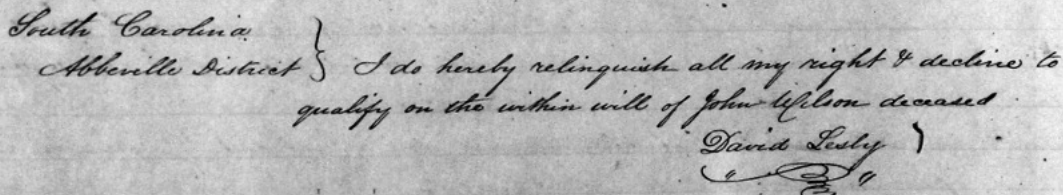 South Carolina
Abbeville District } I do hereby relinquish all my right & decline to
qualify on the within will of John Wilson deceased
David Lesly }
" "